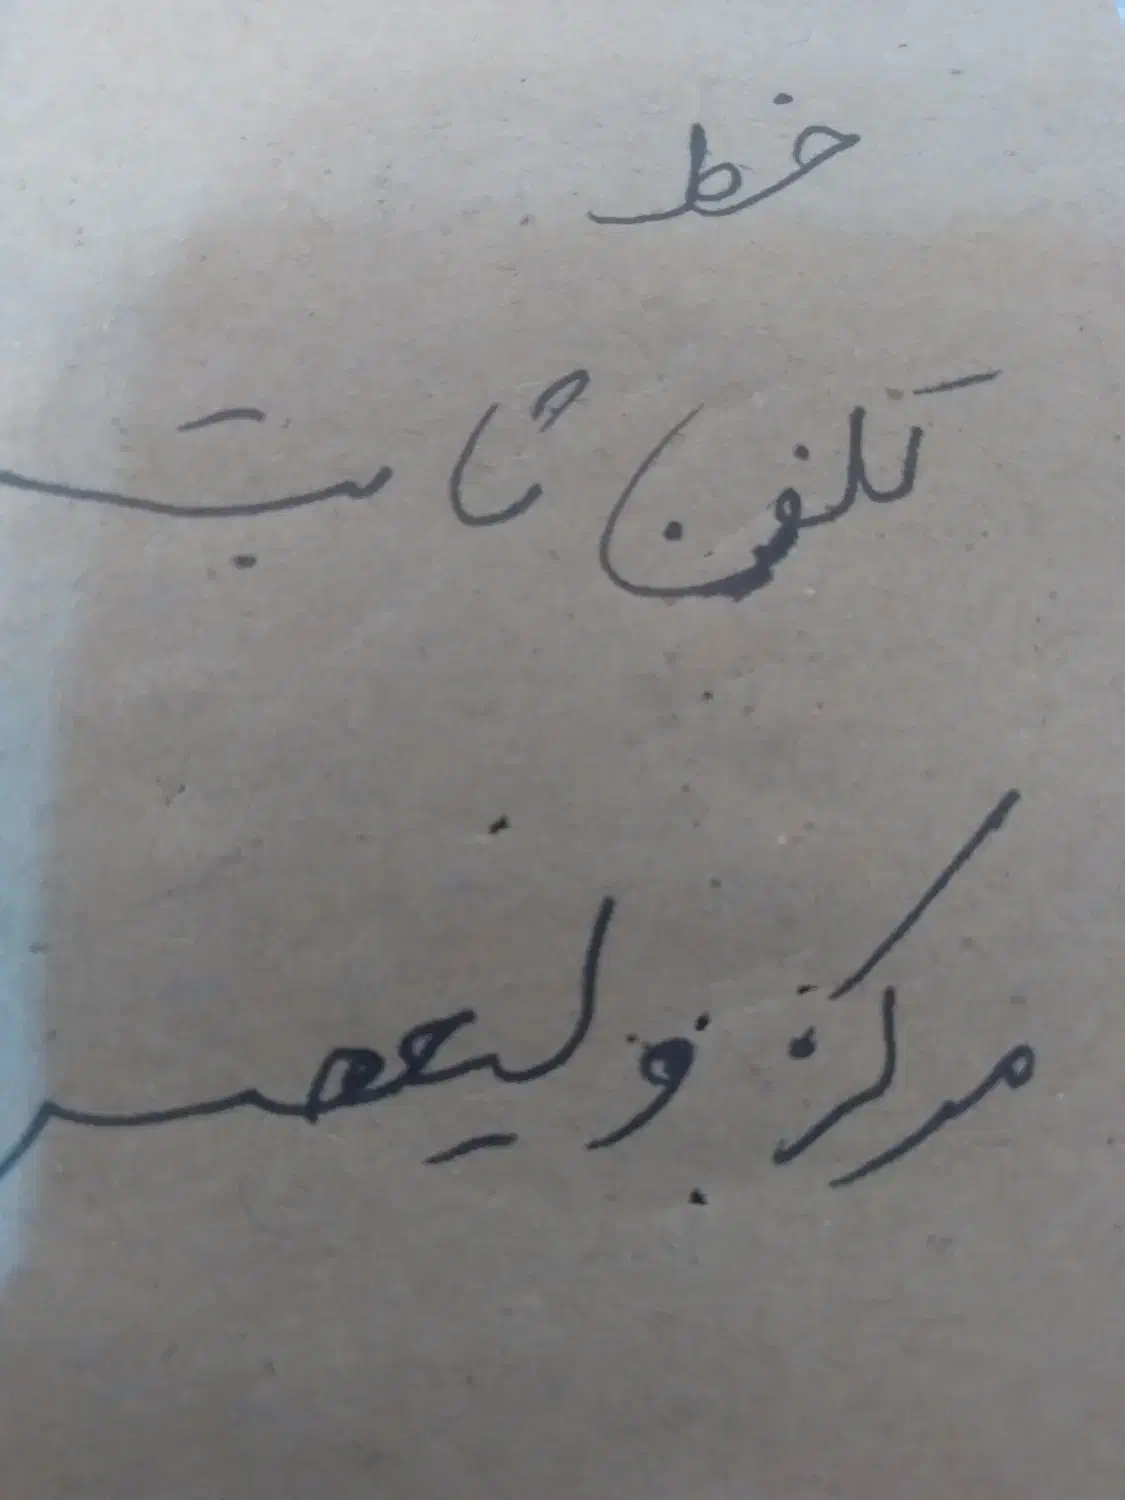 خط
تلفن ثابت
مرکز ولیعصر